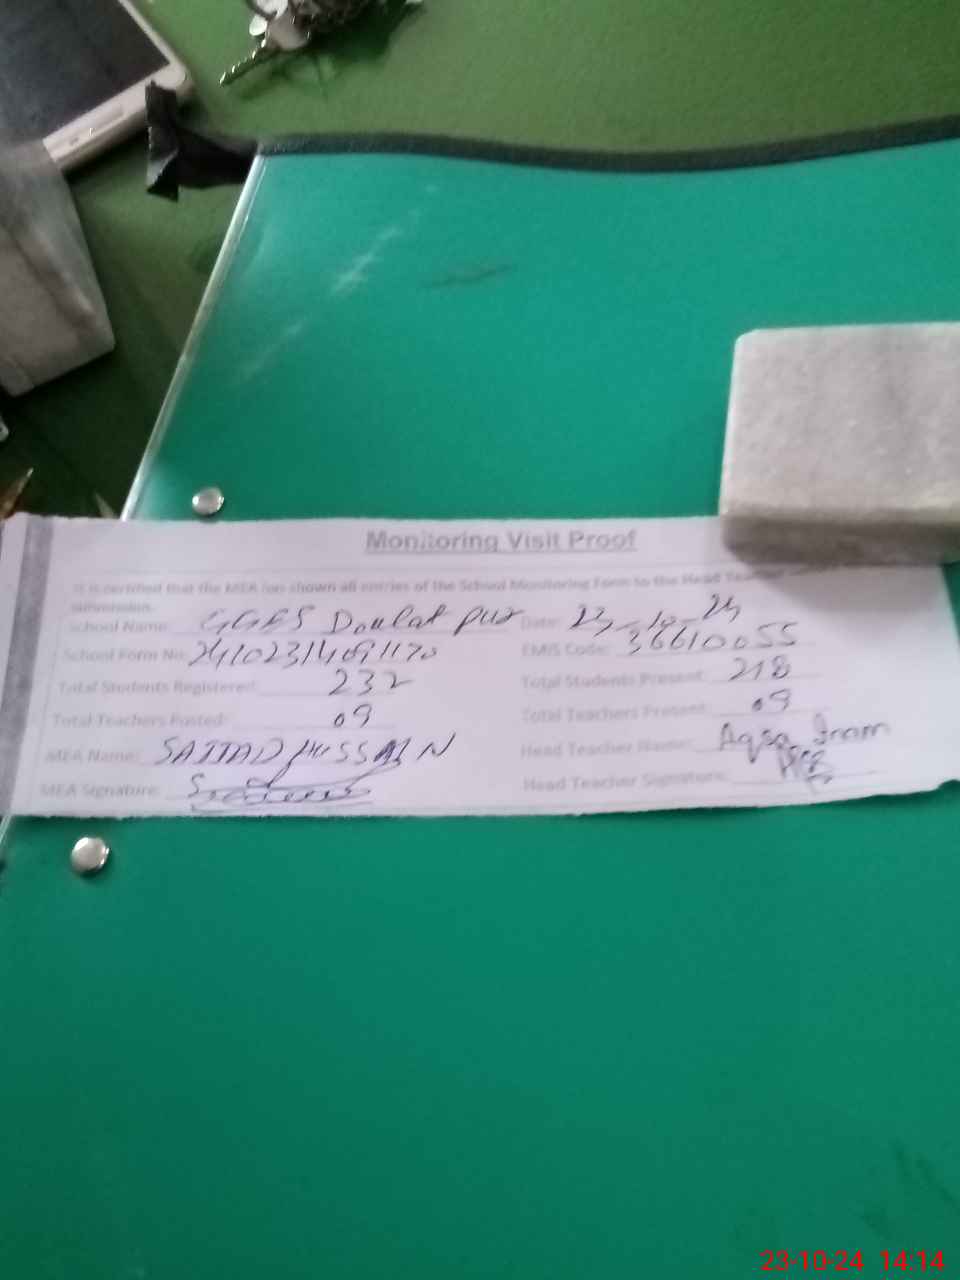 Monitoring Visit Proof
It is certified that the MEA has shown all entries of the School Monitoring Form to the Head
submission.
School Name: GGES Doulat pur Date: 23-10-24
School Form No: EMIS Code: 36610055
Total Students Registered: 232 Total Students Present: 218
Total Teachers Posted: 09 Total Teachers Present: 09
MEA Name: SAJJAD HUSSAIN Head Teacher Name: Aqsa Inam
MEA Signature: Head Teacher Signature:
23-10-24 14:14